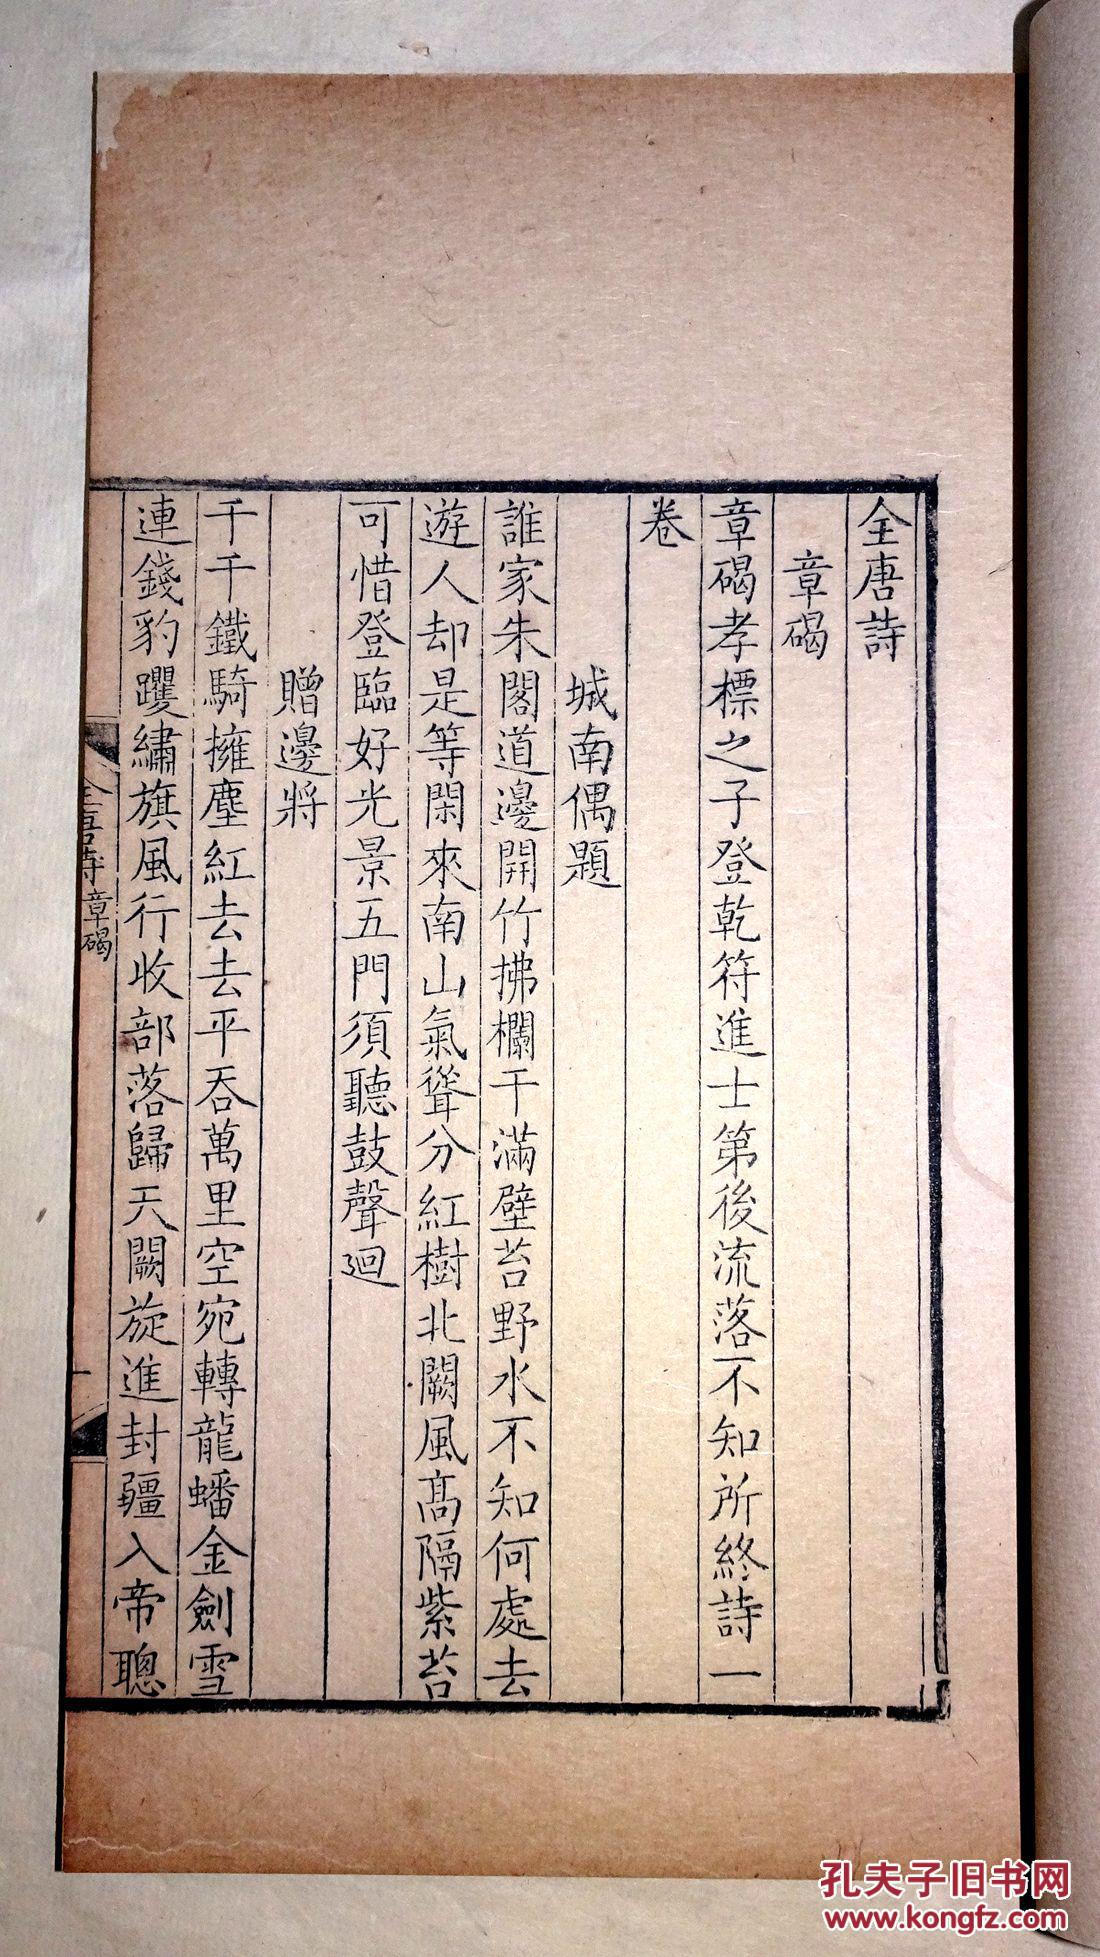 全唐詩
章碣
章碣孝標之子登乾符進士第後流落不知所終詩一
卷
城南偶題
誰家朱閣道邊開竹拂欄干滿壁苔野水不知何處去
遊人却是等閑來南山氣聳分紅樹北闕風高隔紫苔
可惜登臨好光景五門須聽鼓聲迴
贈邊將
千千鐵騎擁塵紅去去平吞萬里空宛轉龍蟠金劍雪
連錢豹躩繡旗風行收部落歸天闕旋進封疆入帝聰
全唐詩 章碣
一
孔夫子旧书网
www.kongfz.com